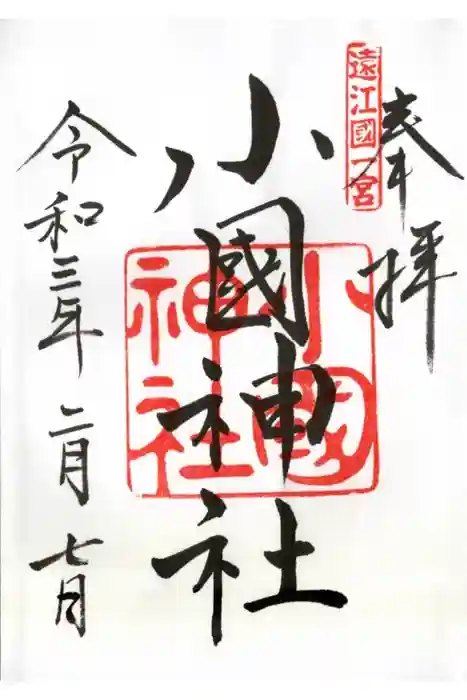 遠江國一宮
奉拝
小國神社
小國神社
令和三年 二月 七月